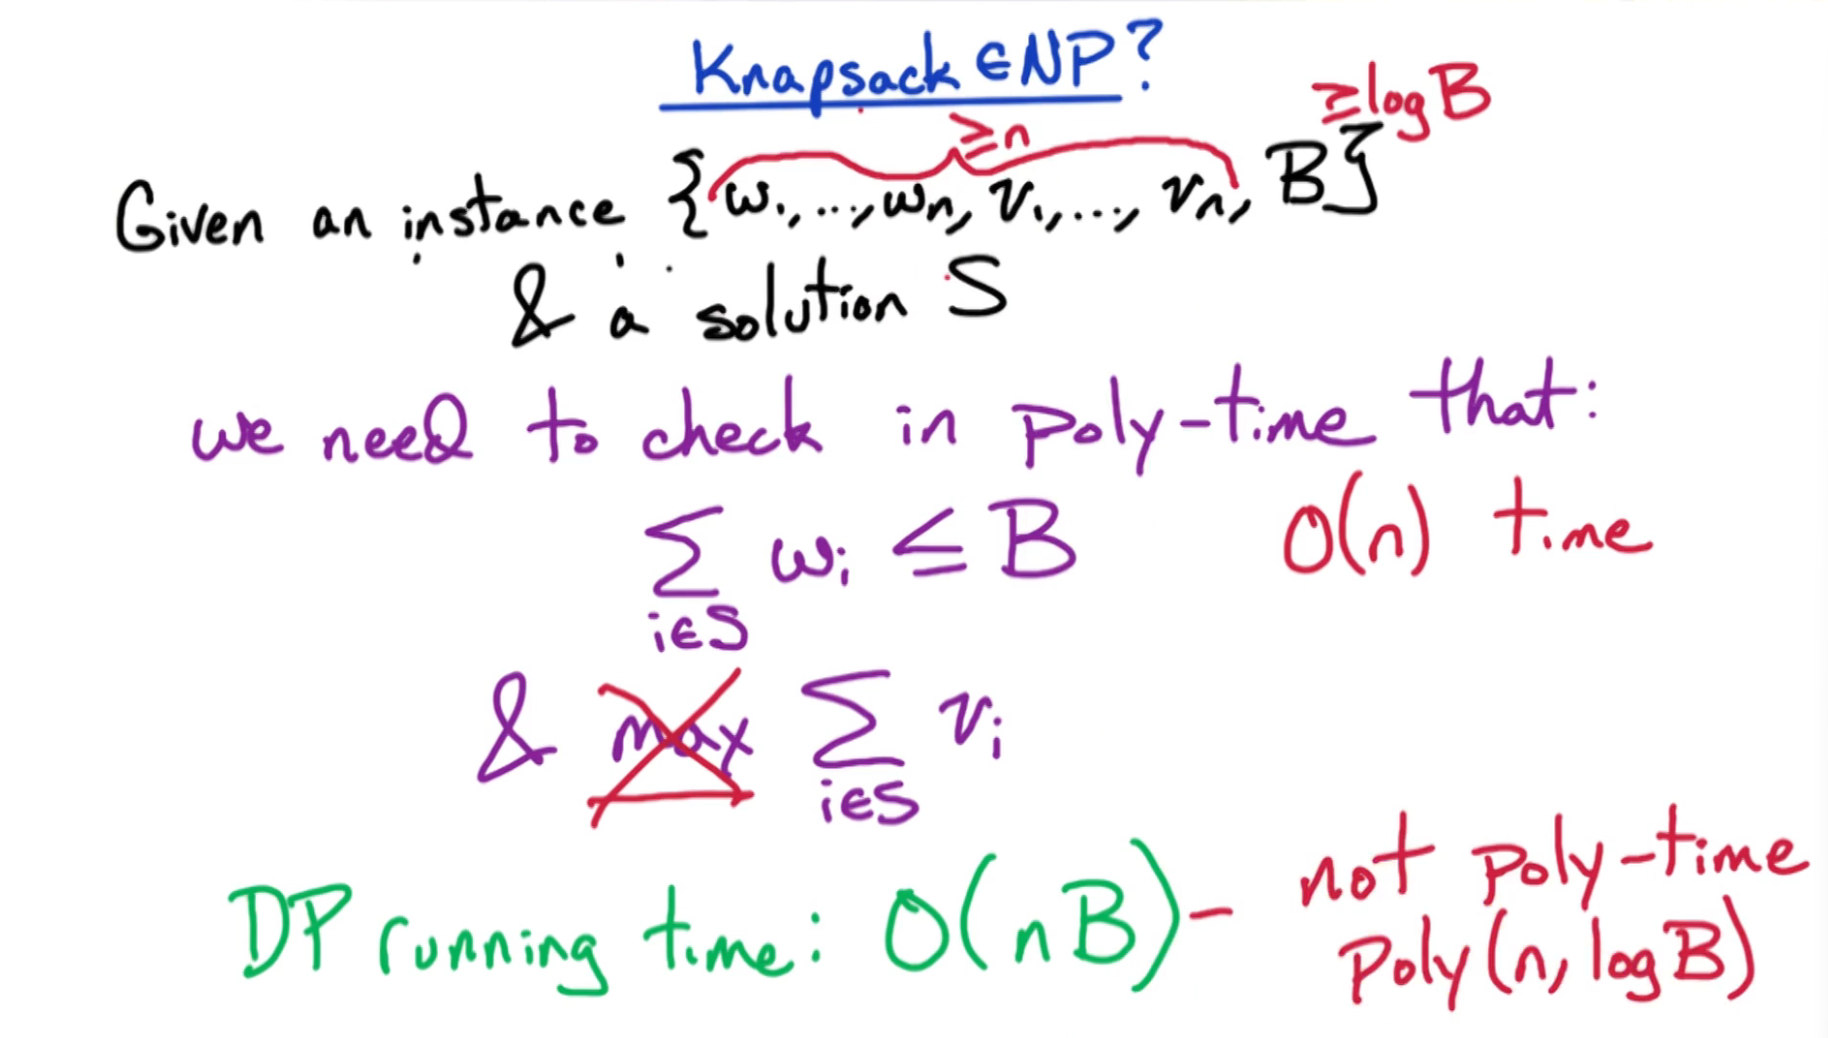 Knapsack ∈ NP?
≥ log B
≥ n
Given an instance {w₁,...,wₙ, v₁,..., vₙ, B}
& a solution S
we need to check in poly-time that:
∑ wᵢ ≤ B O(n) time
i∈S
& max ∑ vᵢ
i∈S
DP running time: O(nB) - not poly-time
poly(n, log B)